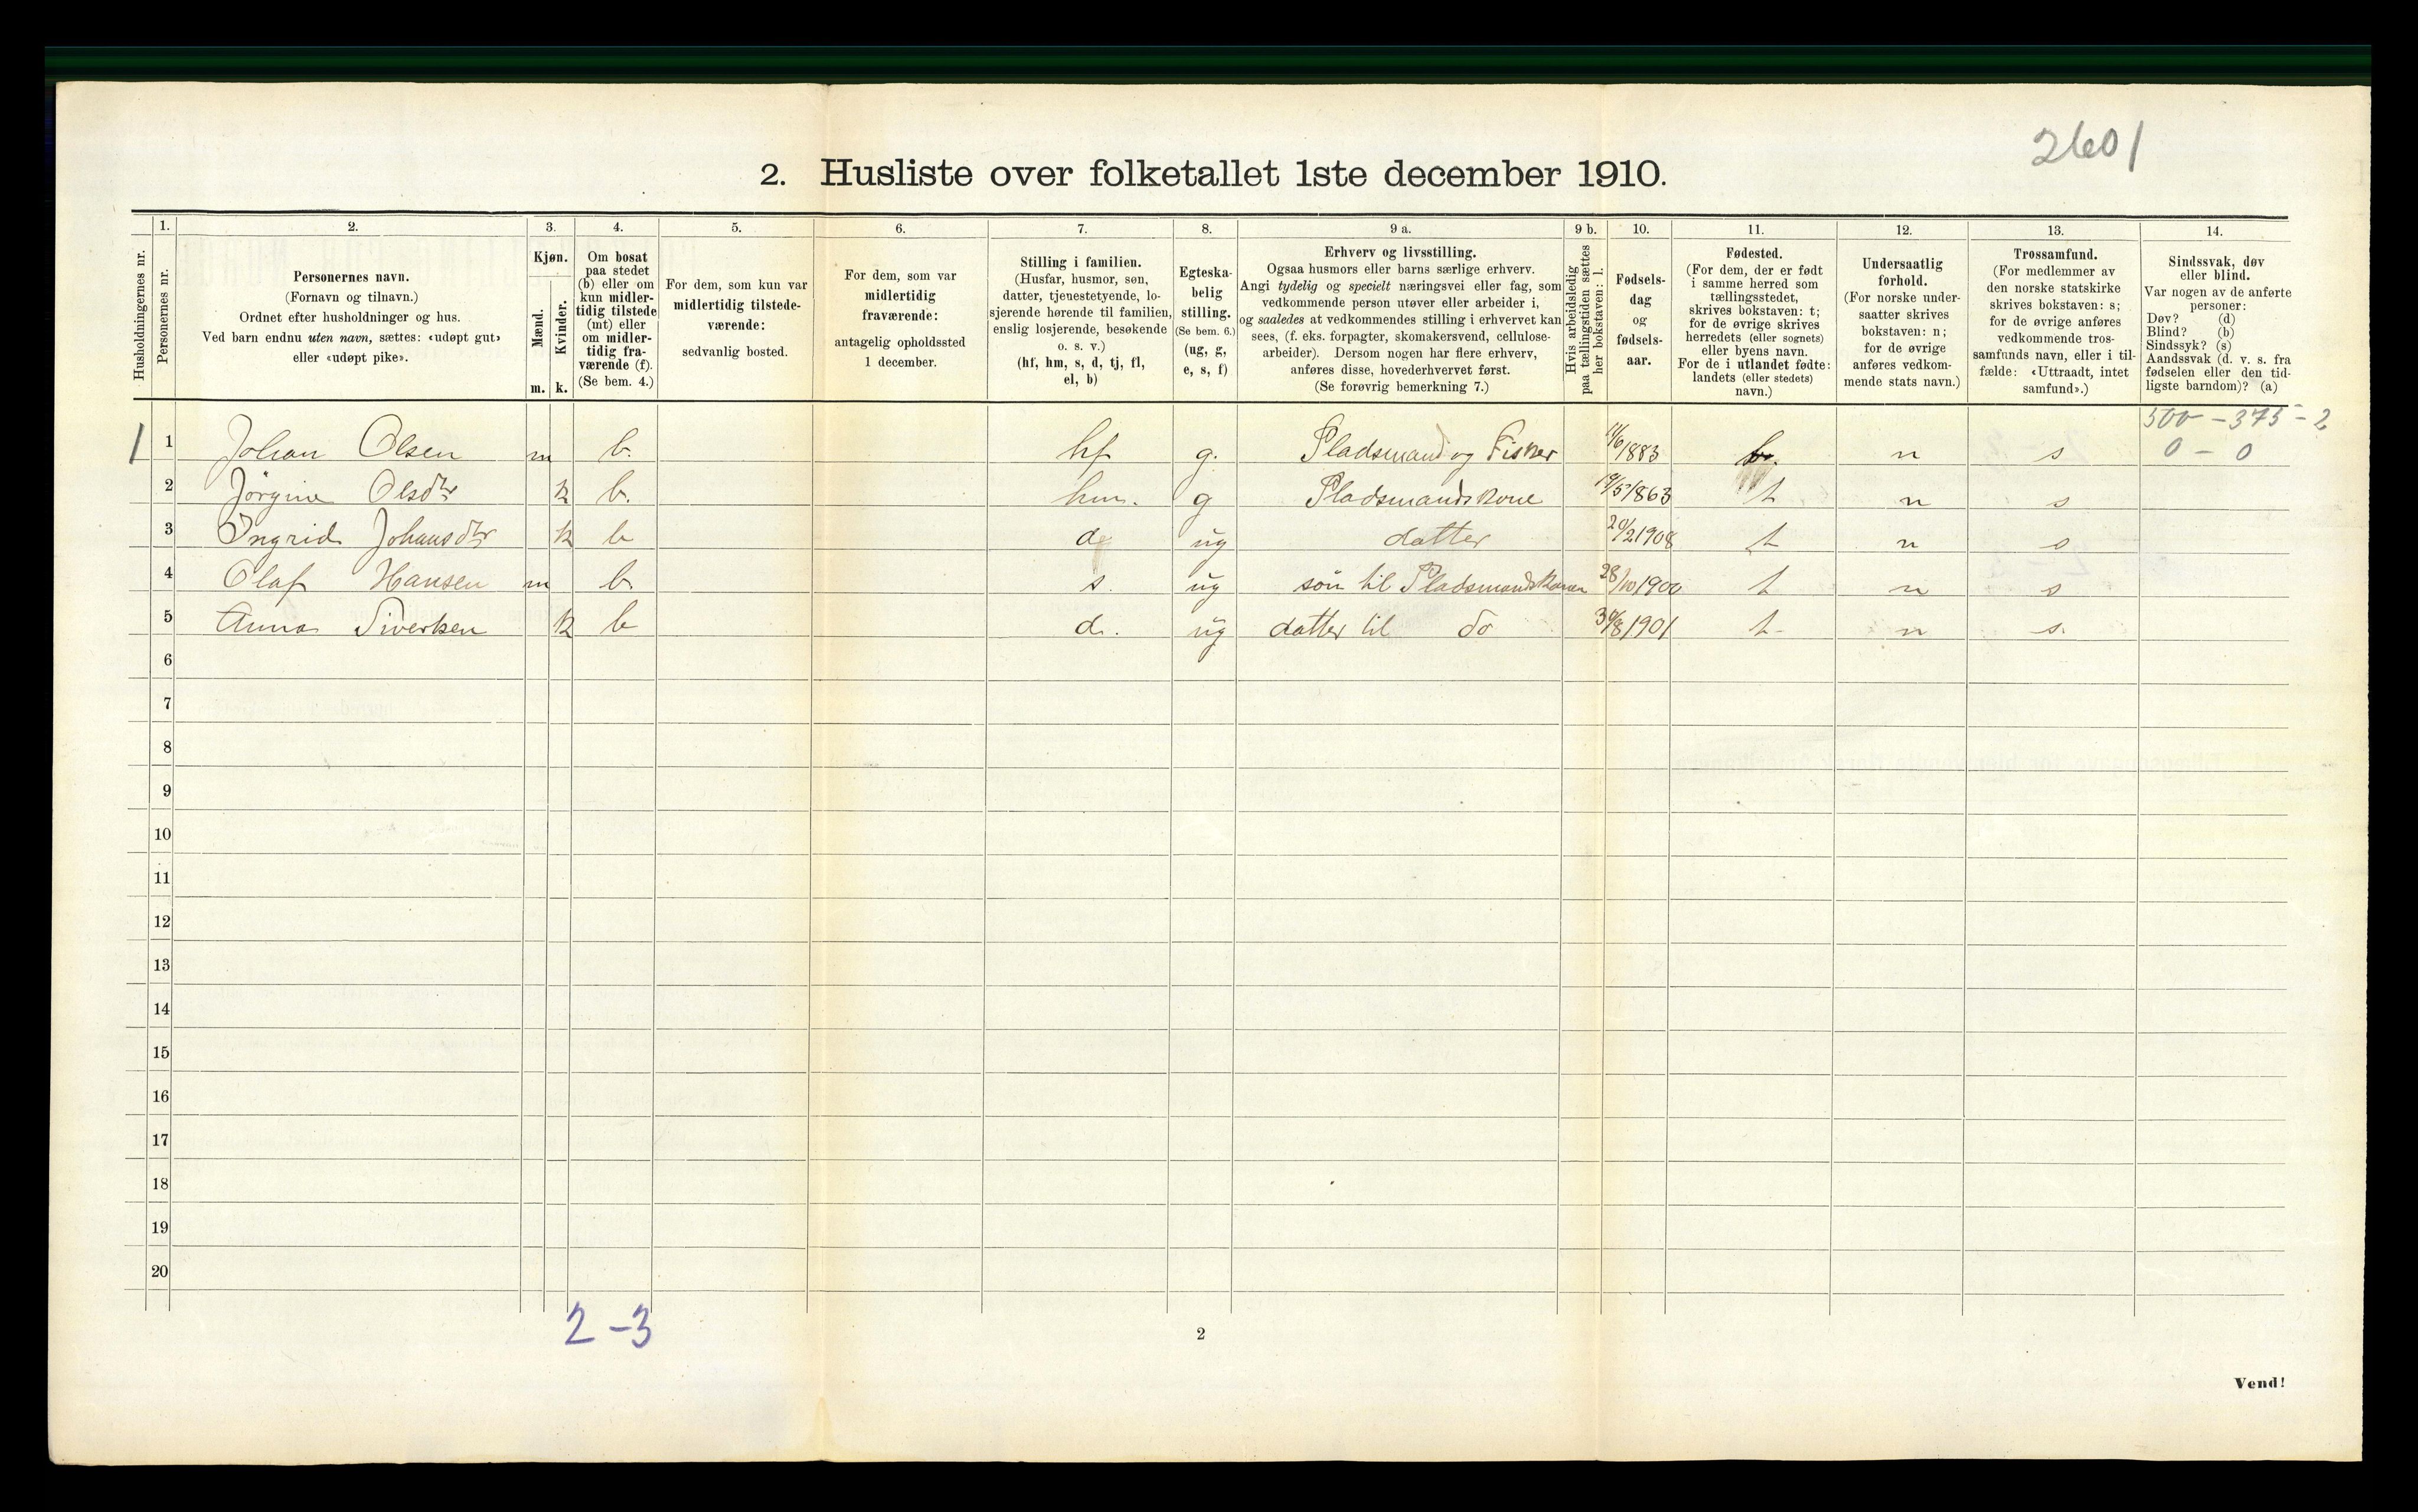 2601
2. Husliste over folketallet 1ste december 1910.
1. 2. 3. 4. 5. 6. 7. 8. 9 a. 9 b. 10. 11. 12. 13. 14.
Husholdningernes nr.
Personernes nr.
Personernes navn.
(Fornavn og tilnavn.)
Ordnet efter husholdninger og hus.
Ved barn endnu uten navn, sættes: «udøpt gut»
eller «udøpt pike».
Kjøn.
Mænd.
Kvinder.
m. k.
Om bosat
paa stedet
(b) eller om
kun midler-
tidig tilstede
(mt) eller
om midler-
tidig fra-
værende (f).
(Se bem. 4.)
For dem, som kun var
midlertidig tilstede-
værende:
sedvanlig bosted.
For dem, som var
midlertidig
fraværende:
antagelig opholdssted
1 december.
Stilling i familien.
(Husfar, husmor, søn,
datter, tjenestetyende, lo-
sjerende hørende til familien,
enslig losjerende, besøkende
o. s. v.)
(hf, hm, s, d, tj, fl,
el, b)
Egteska-
belig
stilling.
(Se bem. 6.)
(ug, g,
e, s, f)
Erhverv og livsstilling.
Ogsaa husmors eller barns særlige erhverv.
Angi tydelig og specielt næringsvei eller fag, som
vedkommende person utøver eller arbeider i,
og saaledes at vedkommendes stilling i erhvervet kan
sees, (f. eks. forpagter, skomakersvend, cellulose-
arbeider). Dersom nogen har flere erhverv,
anføres disse, hovederhvervet først.
(Se forøvrig bemerkning 7.)
Hvis arbeidsledig
paa tællingstiden sættes
her bokstaven: l.
Fødsels-
dag
og
fødsels-
aar.
Fødested.
(For dem, der er født
i samme herred som
tællingsstedet,
skrives bokstaven: t;
for de øvrige skrives
herredets (eller sognets)
eller byens navn.
For de i utlandet fødte:
landets (eller stedets)
navn.)
Undersaatlig
forhold.
(For norske under-
saatter skrives
bokstaven: n;
for de øvrige
anføres vedkom-
mende stats navn.)
Trossamfund.
(For medlemmer av
den norske statskirke
skrives bokstaven: s;
for de øvrige anføres
vedkommende tros-
samfunds navn, eller i til-
fælde: «Uttraadt, intet
samfund».)
Sindssvak, døv
eller blind.
Var nogen av de anførte
personer:
Døv? (d)
Blind? (b)
Sindssyk? (s)
Aandssvak (d. v. s. fra
fødselen eller den tid-
ligste barndom)? (a)
500 - 375 - 2
1 1 Johan Olsen m b. hf g. Pladsmand og Fisker /6 1883 n s 0 - 0
2 Jörgine Olsdtr k b. hm. g Pladsmandskone /5 1863 t n s
3 Ingrid Johansdtr k b d ug datter 20/2 1908 t n s
4 Olaf Hansen m b. s. ug sön til Pladsmandskonen 28/10 1900 t n s
5 Anna Sivertsen k b d. ug datter til do 30/8 1901 t n s.
6
7
8
9
10
11
12
13
14
15
16
17
18
19
20
2 - 3
2
Vend!